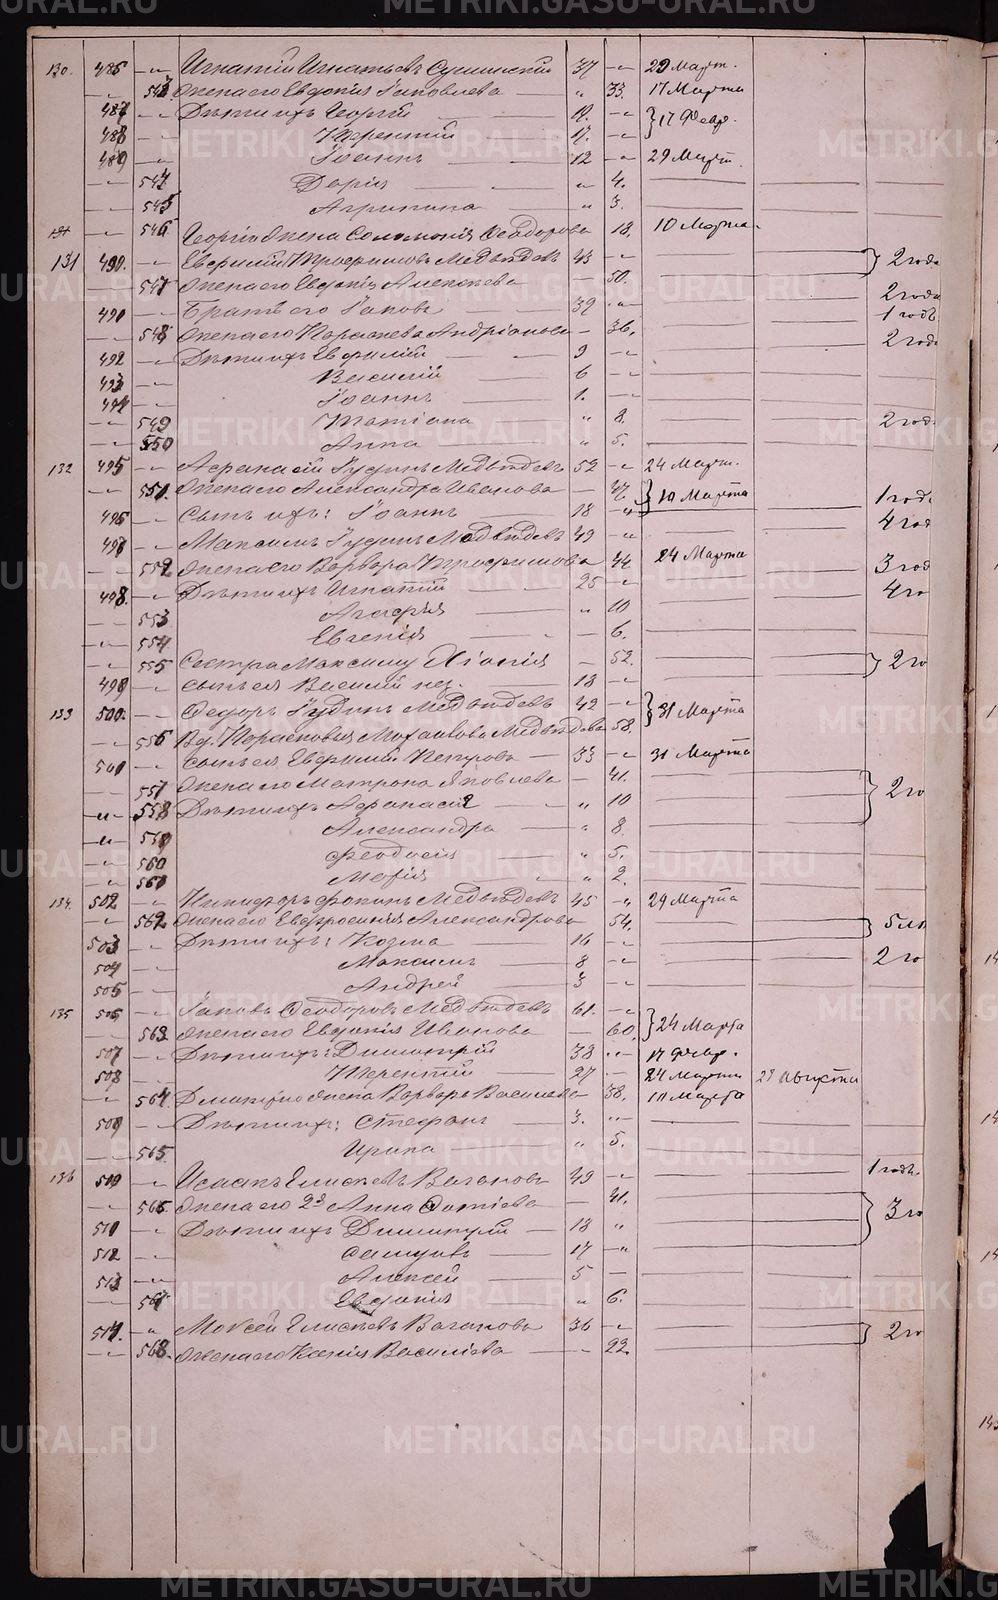 METRIKI.GASO-URAL.RU
130. 485 -"- Игнатий Игнатьевъ Сушинский 37 -"- 29 Март.
-"- 542 Жена его Евдокия Яковлева — " 33. 17 Марта
487 -"- Дети ихъ Георгий — 19. -"- } 17 Февр.
488 -"- Терентий 17. -"-
489 -"- Иоаннъ — 12 -"- 29 Март.
-"- 544 Дария — " 4.
-"- 545 Агрипина — " 3.
-"- 546 Георгия жена Соломония Феодорова 18. 10 Марта.
131 490. -"- Евфимий Трофимовъ Медведевъ 43 -"- } 2 года
-"- 547 Жена его Евдокия Алексеева — 50.
491 -"- Братъ его Яковъ — 39 -"- 2 года
1 годъ
-"- 548 Жена его Параскева Андрианова — 36. 2 года
492 -"- Дети ихъ Евфимий — 9 -"-
493 -"- Василий — 6 -"-
494 -"- Иоаннъ — 1. -"-
-"- 549 Татиана " 8. 2 год.
-"- 550 Анна — " 5.
132 495 -"- Афанасий Гудинъ Медведевъ 52 -"- 24 Март.
-"- 551. Жена его Александра Иванова — 47 } 10 Марта 1 годъ
496 -"- Сынъ ихъ: Иоаннъ — 18 -"- 4 год
497 -"- Максимъ Гудинъ Медведевъ 49 -"-
-"- 552 Жена его Варвара Трофимова 44 24 Марта 3 год
498. -"- Дети ихъ Игнатий — 25 -"- 4 го
-"- 553 Агафия " 10
-"- 554 Евгения — 6.
-"- 555 Сестра Максиму Хиония — 52. } 2 го
499 -"- сынъ ея Василий нез. — 18 -"-
133 500. -"- Федоръ Гудинъ Медведевъ 42 -"- } 31 Марта
-"- 556 Вд. Параскевия Михаилова Медведева 58.
501 -"- сынъ ея Евфимий Петровъ — 33 -"- 31 Марта
-"- 557 Жена его Матрона Яковлева — 41. } 2 го
-"- 558 Дети ихъ Афанасия — " 10
-"- 559 Александра — " 8.
-"- 560 Феодосия — " 5.
-"- 561 Мария — " 2.
134. 502 -"- Никифоръ Фокинъ Медведевъ 45 -"- 29 Марта
-"- 562 Жена его Евфросиния Александрова 54. } 5 ле
503 -"- Дети ихъ: Козма — 16 -"-
504 -"- Максимъ — 8 -"- 2 го
505 -"- Андрей — 3 -"-
135 506 -"- Яковъ Феодоровъ Медведевъ 61. -"- } 24 Марта
-"- 563 Жена его Евдокия Иванова — 60.
507 -"- Дети ихъ: Димитрий 38 -"- 17 Февр.
508 -"- Терентий — 27 -"- 24 Марта 29 Августа
-"- 564 Димитрия жена Варвара Василева — 38. 10 Марта
509 -"- Дети ихъ: Стефанъ — 3. -"-
-"- 565 Ирина — " 5.
136 510 -"- Исаакъ Елисеевъ Вагановъ 49 -"- 1 годъ.
-"- 566 Жена его 2я Анна Фотиева — 41. } 3 го
511 -"- Дети ихъ Димитрий — 18 "
512 -"- Самуилъ — 17 -"-
513 -"- Алексей — 5 —
-"- 567 Евдокия — " 6.
514. -"- Моисей Елисеевъ Вагановъ 36 -"- } 2 го
-"- 568. Жена его Ксения Василиева — 22.